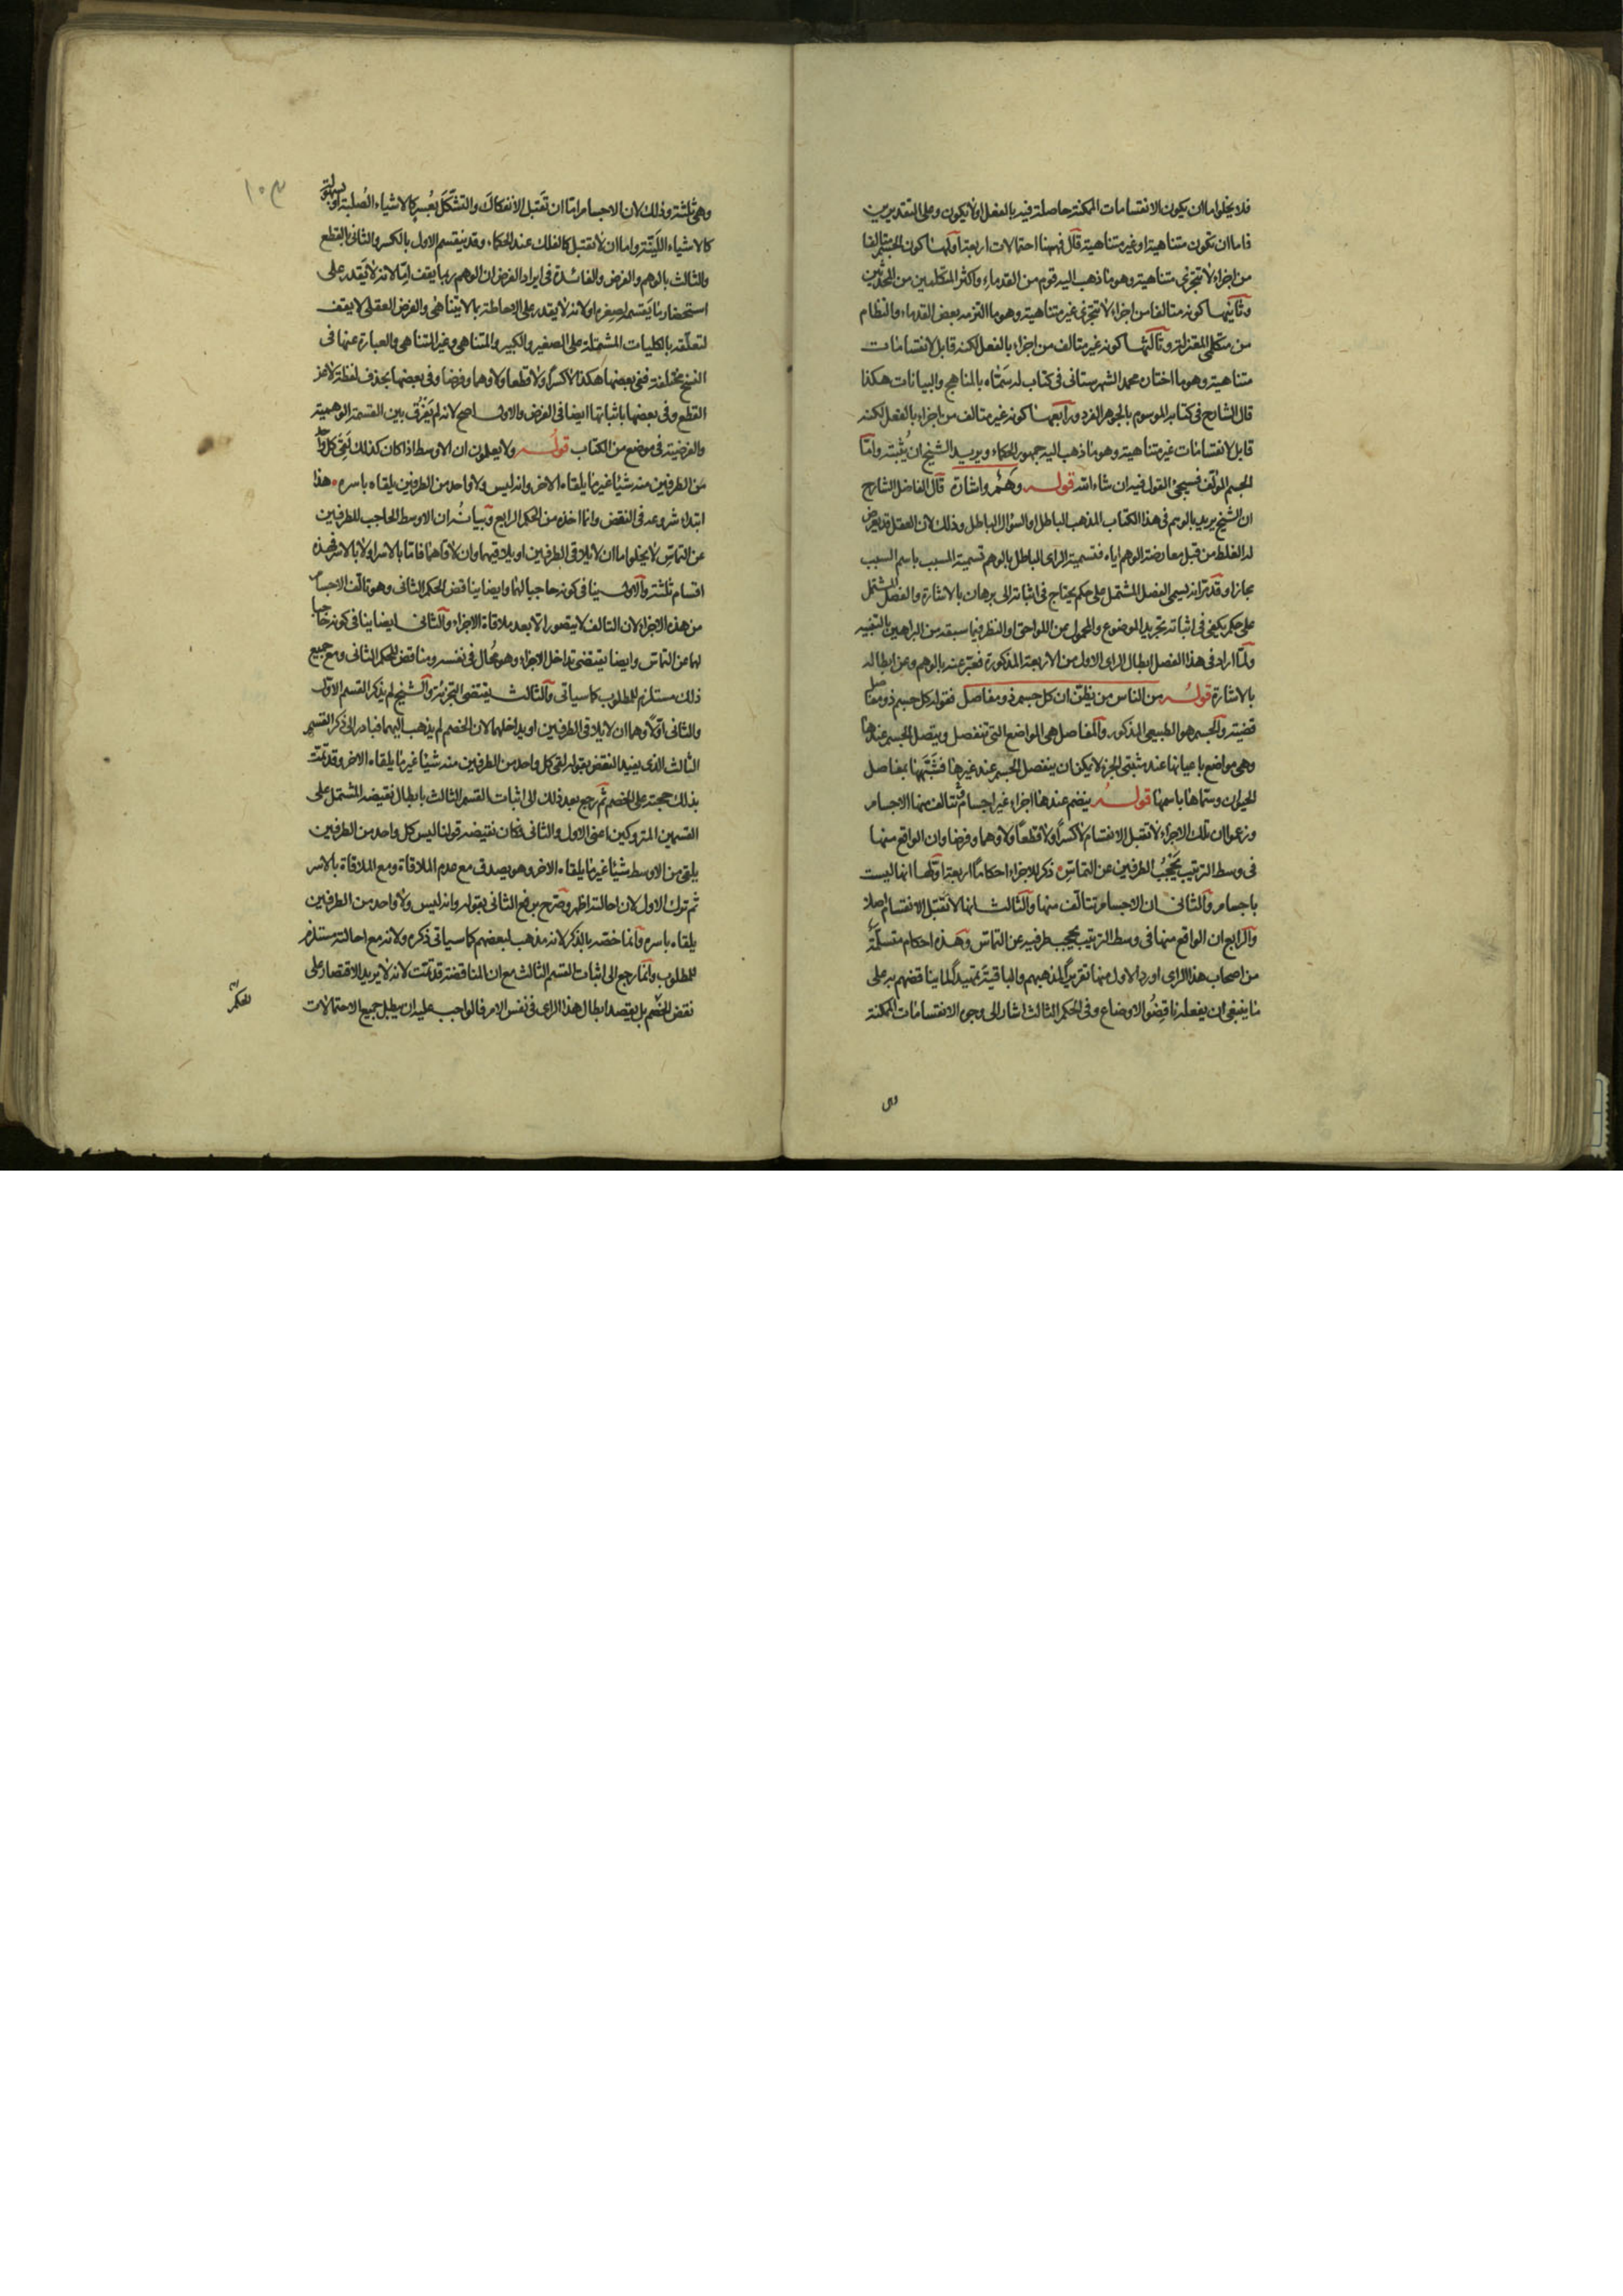 فلا يخلوا ما ان يكون الانقسامات الممكنة حاصلة فيه بالفعل او لا يكون وعلى التقديرين
فاما ان تكون متناهية او غير متناهية قال فههنا احتمالات اربعة اولها كون الجسم متالفا
من اجزاء لا تتجزى متناهية وهو ما ذهب اليه قوم من القدماء واكثر المتكلمين من المحدثين
وثانيها كونه متالفا من اجزاء لا تتجزى غير متناهية وهو ما التزمه بعض القدماء والنظام
من متكلمى المعتزلة وثالثها كونه غير متالف من اجزاء بالفعل لكنه قابل لانقسامات
متناهية وهو ما اختاره محمد الشهرستانى فى كتاب له سماه بالمناهج والبيانات هكذا
قال الشارح فى كتابه الموسوم بالجوهر الفرد ورابعها كونه غير متالف من اجزاء بالفعل لكنه
قابل لانقسامات غير متناهية وهو ما ذهب اليه جمهور الحكماء ويريد الشيخ ان يثبته واما
الجسم المؤلف فسيجئ القول فيه ان شاء الله قوله وهم واشارة قال الفاضل الشارح
ان الشيخ يريد بالوهم فى هذا الكتاب المذهب الباطل او السؤال الباطل وذلك لان العقل قد يعرض
له الغلط من قبل معارضة الوهم اياه فتسمية الراى الباطل بالوهم تسمية المسبب باسم السبب
مجازا وقد مر انه يسمى الفصل المشتمل على حكم يحتاج فى اثباته الى برهان بالاشارة والفصل المشتمل
على حكم يكفى فى اثباته تجريد الموضوع والمحمول من اللواحق او النظر فيما سبقه من البراهين بالتنبيه
ولما اراد فى هذا الفصل ابطال الراى الاول من الاربعة المذكورة فعبر عنه بالوهم وعن ابطاله
بالاشارة قوله من الناس من يظن ان كل جسم ذو مفاصل فقوله كل جسم ذو مفاصل
قضية والجسم هو الطبيعى المذكور والمفاصل هى المواضع التى تنفصل ويتصل الجسم عندها
وهى مواضع باعيانها عند مثبتى الجزء لا يمكن ان ينفصل الجسم عند غيرها فشبهها بمفاصل
الحيوان وسماها باسمها قوله ينضم عندها اجزاء غير اجسام تتالف منها الاجسام
وزعموا ان تلك الاجزاء لا تقبل الانقسام لا كسرا ولا قطعا ولا وهما وفرضا وان الواقع منها
فى وسط الترتيب يحجب الطرفين عن التماس ذكر للاجزاء احكاما اربعة اولها انها ليست
باجسام والثانى ان الاجسام تتالف منها والثالث انها لا تقبل الانقسام اصلا
والرابع ان الواقع منها فى وسط الترتيب يحجب طرفيه عن التماس وهذه احكام متسلمة
من اصحاب هذا الراى اورد الاول منها تقريرا لمذهبهم والباقية تمهيدا لما يناقضهم به على
ما ينبغى ان يفعله ناقضو الاوضاع وفى الحكم الثالث اشار الى وجوه الانقسامات الممكنة
١٠٣
وهى ثلثة وذلك لان الاجسام اما ان تقبل الانفكاك والتشكل بعسر كالاشياء الصلبة او بسهولة
كالاشياء اللينة واما ان لا تقبل كالفلك عند الحكماء وقد ينقسم الاول بالكسر والثانى بالقطع
والثالث بالوهم والفرض والفائدة فى ايراد الفرض ان الوهم ربما يقف اما لانه لا يقدر على
استحضار ما يقسمه لصغره او لانه لا يقدر على الاحاطة بما لا يتناهى والفرض العقلى لا يقف
لتعلقه بالكليات المشتملة على الصغير والكبير والمتناهى وغير المتناهى والعبارة عنها فى
النسخ مختلفة ففى بعضها هكذا لا كسرا ولا قطعا ولا وهما وفرضا وفى بعضها بحذف لفظة لا عن
القطع وفى بعضها باثباتها ايضا فى الفرض والاول اصح لانه لم يفرق بين القسمة الوهمية
والفرضية فى موضع من الكتاب قوله ولا يعلمون ان الاوسط اذا كان كذلك لقى كل واحد
من الطرفين منه شيئا غير ما يلقاه الاخر وانه ليس ولا واحد من الطرفين يلقاه باسره هذا
ابتداء شروعه فى النقض وانما اخذه من الحكم الرابع وبيانه ان الاوسط الحاجب للطرفين
عن التماس لا يخلو اما ان لا يلاقى الطرفين او يلاقيهما وان لاقاهما فاما بالاسر او لا بالاسر فهذه
اقسام ثلثة والاول ينافى كونه حاجبا لهما وايضا يناقض الحكم الثانى وهو تالف الاجسام
من هذه الاجزاء لان التالف لا يتصور الا بعد ملاقاة الاجزاء والثانى ايضا ينافى كونه حاجبا
لهما عن التماس وايضا يقتضى تداخل الاجزاء وهو محال فى نفسه ومناقض للحكم الثانى ومع جميع
ذلك مستلزم للمطلوب كما سياتى والثالث يقتضى التجزئة والشيخ لم يذكر القسم الاول
والثانى اولا وهما ان لا يلاقى الطرفين او يداخلهما لان الخصم لم يذهب اليهما فبادر الى ذكر القسم
الثالث الذى يفيد النقض بقوله لقى كل واحد من الطرفين منه شيئا غير ما يلقاه الاخر وقد تمت
بذلك حجته على الخصم ثم رجع بعد ذلك الى اثبات القسم الثالث بابطال نقيضه المشتمل على
القسمين المتروكين اعنى الاول والثانى فكان نقيضه قولنا ليس كل واحد من الطرفين
يلقى من الاوسط شيئا غير ما يلقاه الاخر وهو يصدق مع عدم الملاقاة ومع الملاقاة بالاسر
ثم ترك الاول لان احالته اظهر وصرح برفع الثانى بقوله وانه ليس ولا واحد من الطرفين
يلقاه باسره وانما خصه بالذكر لانه مذهب لبعضهم كما سياتى ذكره ولانه مع احالته مستلزم
للمطلوب وانما رجع الى اثبات القسم الثالث مع ان المناقضة قد تمت لانه لا يريد الاقتصار على
نقض الخصم بل يقصد ابطال هذا الراى فى نفس الامر فالواجب عليه ان يبطل جميع الاحتمالات